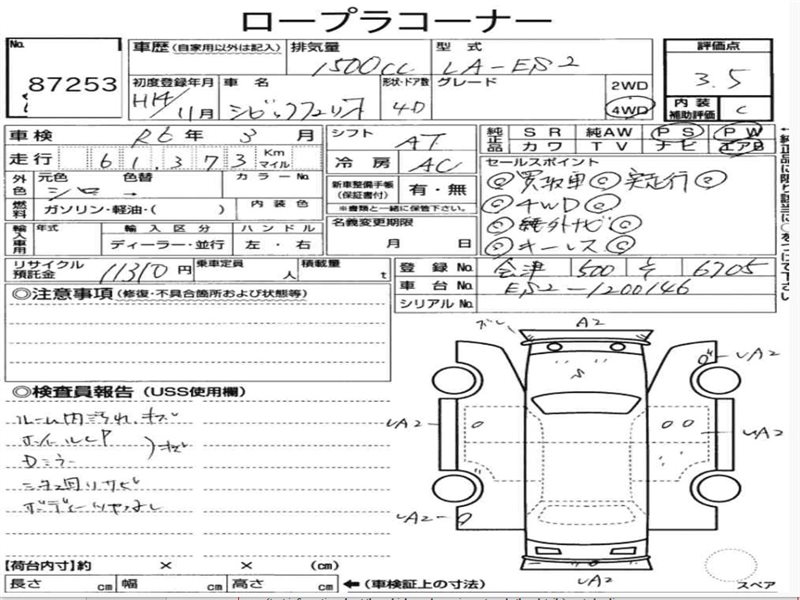 ロープラコーナー
No.
87253
車歴 (自家用以外は記入) 排気量 1500cc 型式 LA-ES2
評価点 3.5
初度登録年月 H14/11月 車名 シビックフェリオ 形状・ドア数 4D グレード 2WD 4WD
内装補助評価 C
車検 R6年 3月 シフト AT
純正品 SR 純AW PS PW
カワ TV ナビ エアB
走行 61,373 Km マイル
冷房 AC
セールスポイント
外色 元色 シロ → 色替 カラーNo.
新車整備手帳 (保証書付) 有・無
※書類と一緒に保管下さい。
◎買取車◎実走行◎
◎4WD◎
◎純外ナビ◎
◎キーレス◎
燃料 ガソリン・軽油・( ) 内装色
名義変更期限
月 日
輸入車用 年式 輸入区分 ハンドル
ディーラー・並行 左・右
リサイクル預託金 11310円 乗車定員 人 積載量 t
登録No. 会津 500 6705
車台No. ES2-1200146
シリアルNo.
◎注意事項 (修復・不具合箇所および状態等)
◎検査員報告 (USS使用欄)
ルーム内汚れ、キズ
ホイルCP
Dミラー
キズ
下回りサビ
A2
UA2
UA2
UA2
UA2
UA2
スペア
【荷台内寸】約 × × (cm)
長さ cm 幅 cm 高さ cm ←(車検証上の寸法)